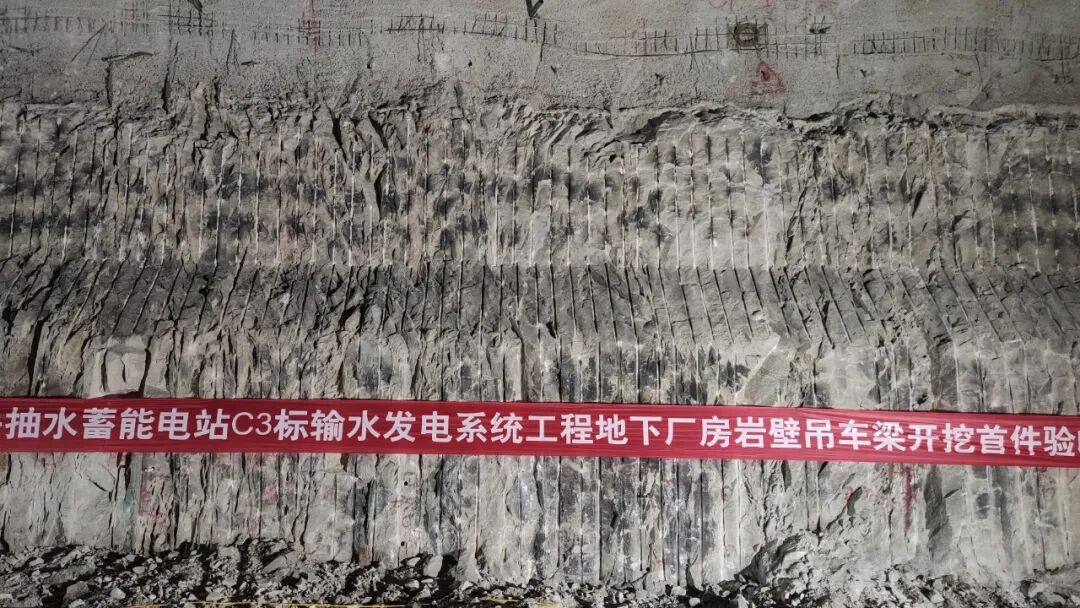 抽水蓄能电站C3标输水发电系统工程地下厂房岩壁吊车梁开挖首件验